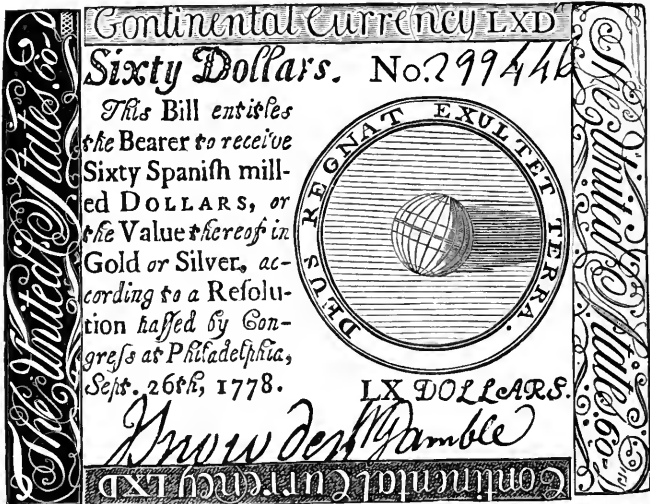 Continental Currency LXD
Sixty Dollars. No. 299446
This Bill entitles
the Bearer to receive
Sixty Spaniſh mill-
ed DOLLARS, or
the Value thereof in
Gold or Silver, ac-
cording to a Reſolu-
tion paſſed by Con-
greſs at Philadelphia,
Sept. 26th, 1778.
DEUS REGNAT EXULTET TERRA.
LX DOLLARS.
Gamble
Continental Currency LXD
The United States. 60-
The United States. 60-